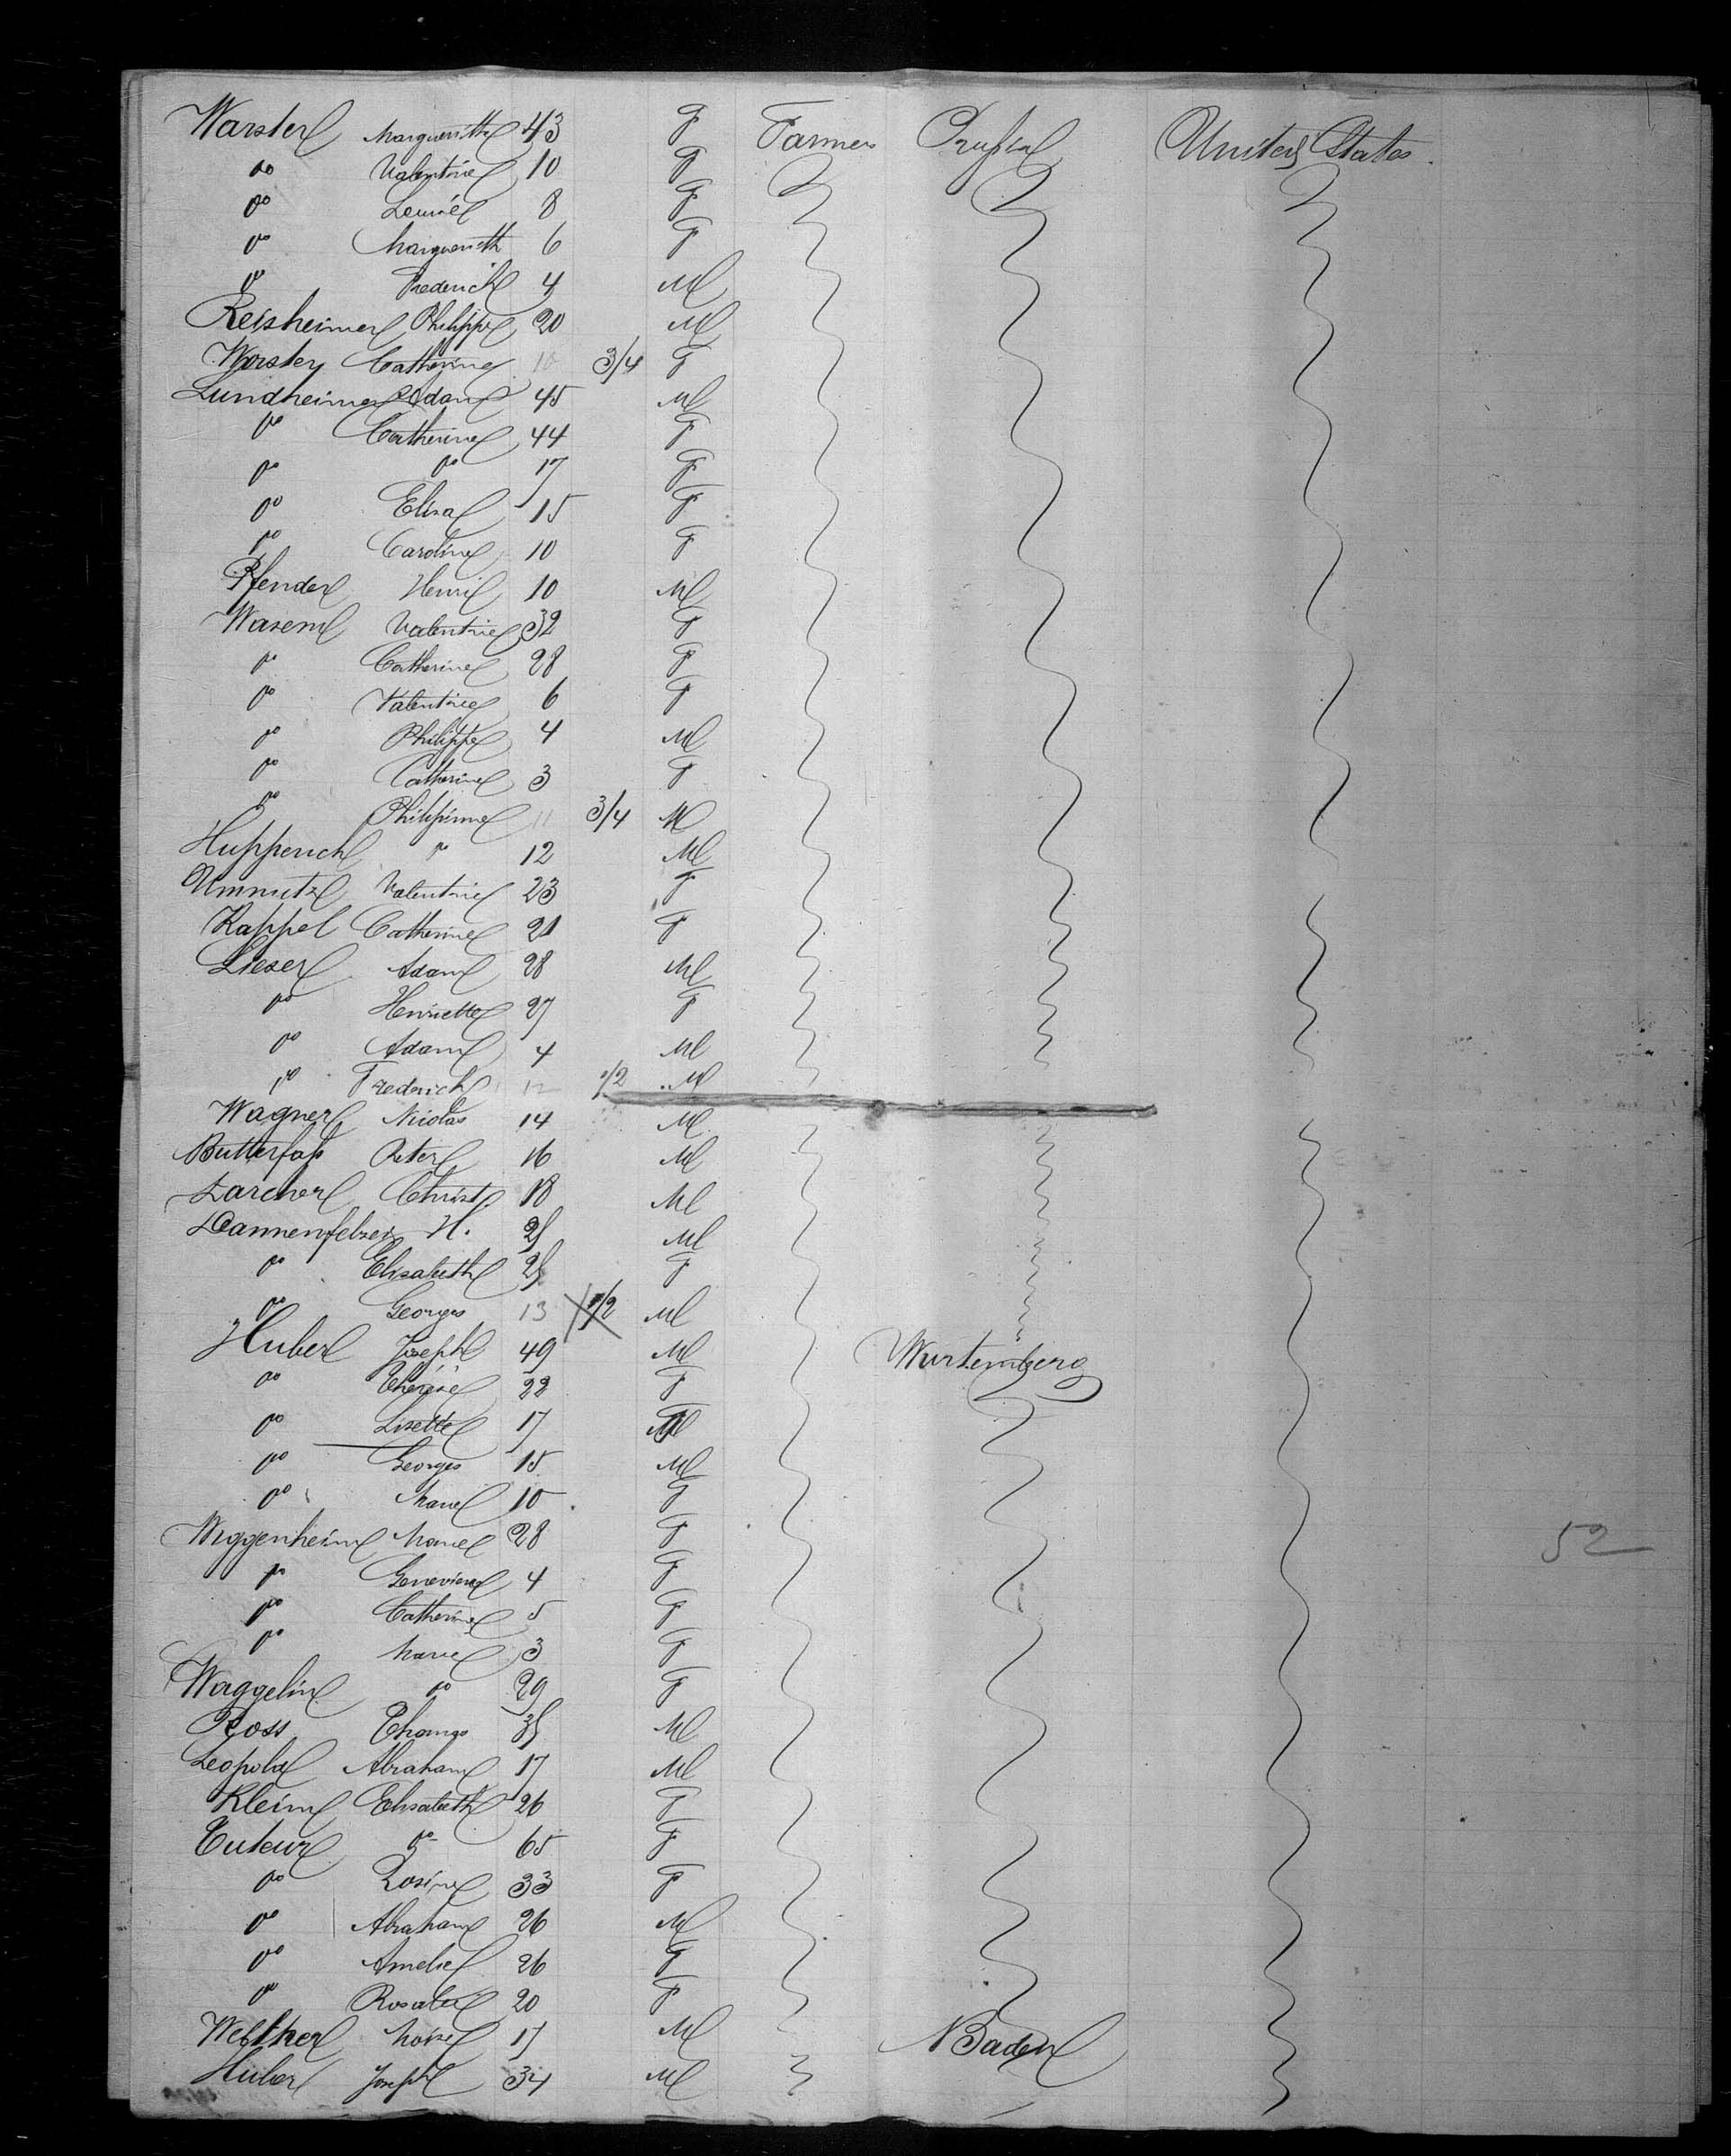 Warster Margueritte 43 F Farmer Prussia United States.
do Valentine 10 F
do Louise 8 F
do Margueritte 6 F
do Frederick 4 M
Reisheimer Philippe 20 M
Worster Catherine 10 3/4 F
Lundheimer Adam 45 M
do Catherine 44 F
do do 17 F
do Elisa 15 F
do Caroline 10 F
Pfender Henri 10 M
Wasem Valentine 32 F
do Catherine 28 F
do Valentine 6 F
do Philippe 4 M
do Catherine 3 F
do Philippine 11 3/4 M
Hupperich do 12 M
Ummutz Valentine 23 F
Kappel Catherine 21 F
Lieser Adam 28 M
do Henriette 27 F
do Adam 4 M
do Frederick 12 1/2 M
Wagner Nicolas 14 M
Butterfass Peter 16 M
Larcher Christ. 18 M
Dannenfelser H. 25 M
do Elisabeth 25 F
do Georges 13 1/2 M
Huber Joseph 49 M Wurtemberg
do Therese 22 F
do Lisette 17
do Georges 15 M
do Marie 10 F
Wiggenheim Marie 28 F
do Genevieve 4 F
52
do Catherine 5 F
do Marie 3 F
Waggelin do 29 F
Ross Thomas 35 M
Leopold Abraham 17 M
Klein Elisabeth 26 F
Tuteur do 65 F
do Rosine 33 F
do Abraham 26 M
do Amelie 26 F
do Rosalie 20 F
Welther Moise 17 M Baden
Huber Joseph 34 M